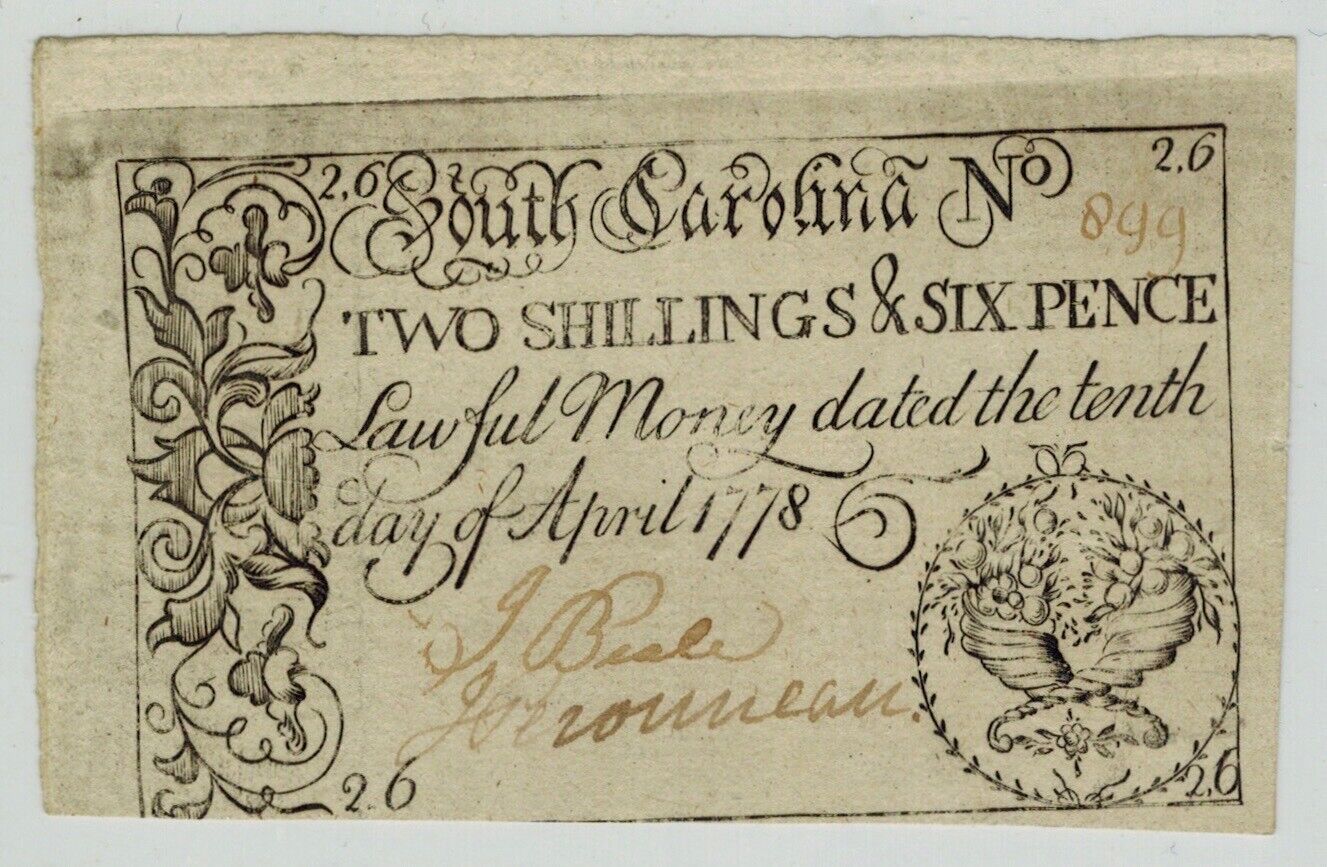 2,6 South Carolina No 2,6
899
TWO SHILLINGS & SIX PENCE
Lawful Money dated the tenth
day of April 1778
J Beale
Heronneau.
2.6 2,6